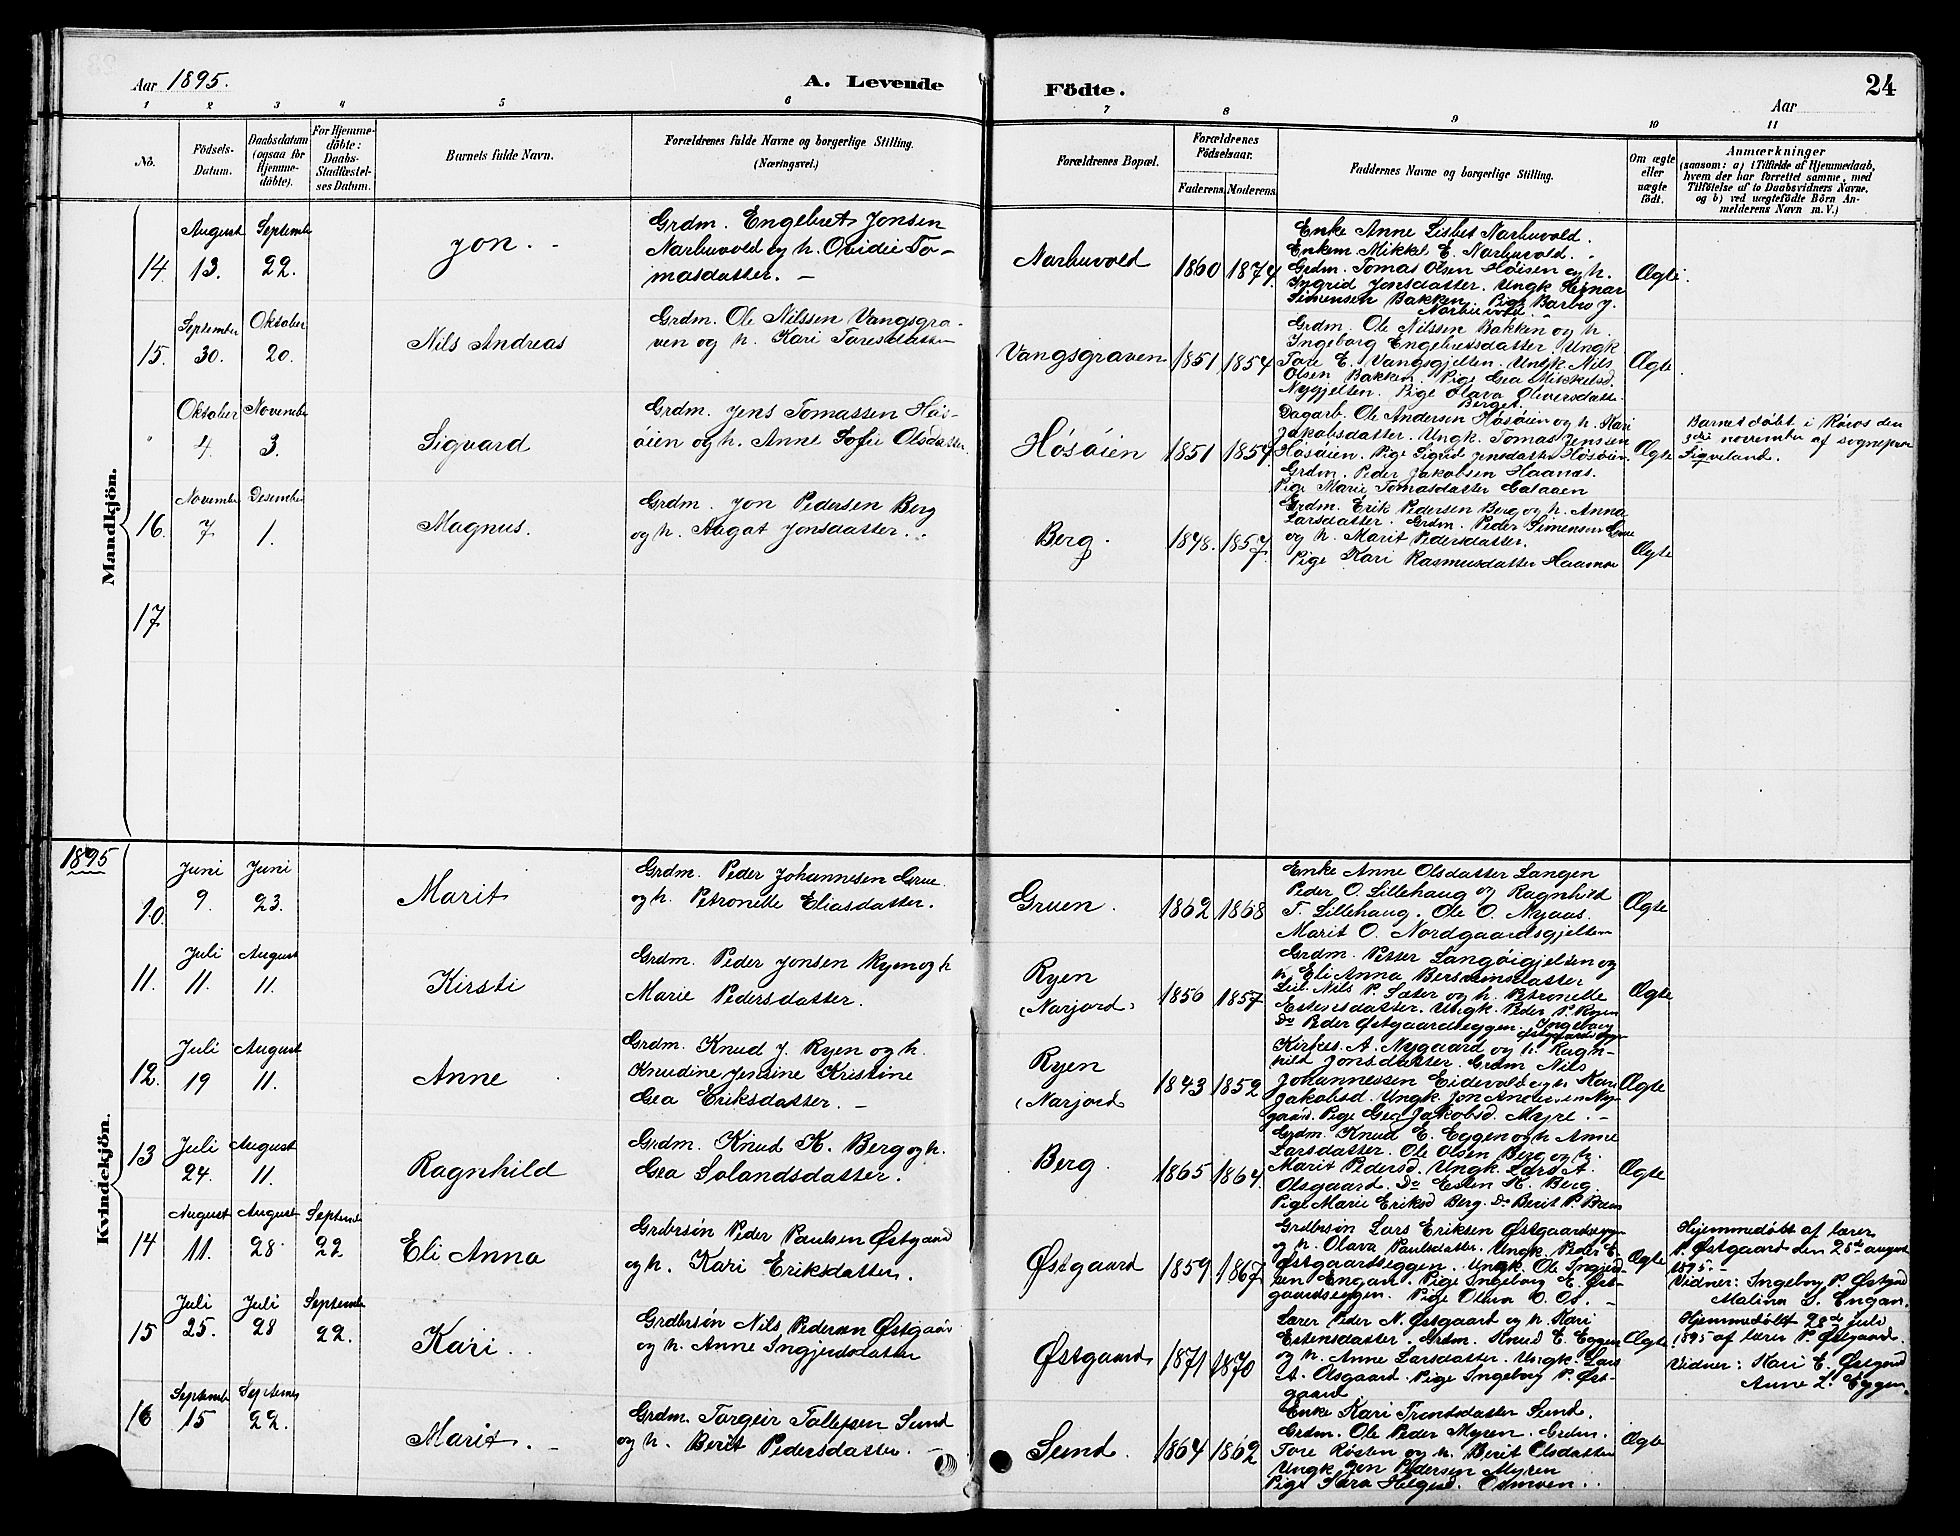 Aar 1895.
A. Levende
Födte.
Aar
24
1 2 3 4 5 6 7 8 9 10 11
No.
Födsels-
Datum.
Daabsdatum
(ogsaa for
Hjemme-
döbte).
For Hjemme-
döbte:
Daabs-
Stadfæstel-
ses Datum.
Barnets fulde Navn.
Forældrenes fulde Navne og borgerlige Stilling.
(Næringsvei.)
Forældrenes Bopæl.
Forældrenes
Födselsaar.
Faderens. Moderens.
Faddernes Navne og borgerlige Stilling.
Om ægte
eller
uægte
födt.
Anmærkninger
(saasom: a) i Tilfælde af Hjemmedaab,
hvem der har forrettet samme, med
Tilföielse af to Daabsvidners Navne,
og b) ved uægtefödte Börn An-
melderens Navn m. V.)
Mandkjön.
14
August
13.
September
22.
Jon.
Grdm. Engebret Jonsen
Narbuvold og h. Ovidie To-
masdatter.
Narbuvold
1860 1874
Enke Anne Lisbet Narbuvold.
Enkem Mikkel E. Narbuvold.
Grdm. Tomas Olsen Høisen og h.
Ingrid Jonsdatter. Ungk
Simensen Bakken. Pige Barbro J.
Narbuvold.
Ægte
15.
September
30.
Oktober
20.
Nils Andreas
Grdm. Ole Nilssen Vangsgra-
ven og h. Kari Toresdatter
Vangsgraven
1851 1854
Grdm. Ole Nilssen Bakken og h.
Ingeborg Engebretsdatter. Ungk
Tore E. Vangsgjelten. Ungk. Nils
Olsen Bakken. Pige Gea Mikkelsd.
Nygjelten. Pige Olava Oliversdatter
Berget.
Ægte
"
Oktober
4.
November
3.
Sigvard
Grdm. Jens Tomassen Høs-
øien og h. Anne Sofie Olsdatter.
Høsøien
1851 1857
Dagarb. Ole Andersen Høsøien og h. Kari
Jakobsdatter. Ungk. Tomas Jenssen
Høsøien. Pige Sigrid Jensdatter Høsøien
Grdm. Peder Jakobsen Haanes.
Pige Marie Tomasdatter
Ægte
Barnet døbt i Røros den
3die november af sogneprest
Sigveland.
16.
November
7
Desember
1.
Magnus.
Grdm. Jon Pedersen Berg
og h. Aagot Jonsdatter.
Berg.
1848. 1857
Grdm. Erik Pedersen Berg og h. Anna
Larsdatter. Grdm. Peder Simensen Grue
og h. Marit Pedersdatter.
Pige Kari Rasmusdatter
Ægte
17
1895
Kvindekjön.
10.
Juni
9.
Juni
23.
Marit
Grdm. Peder Johannesen Grue
og h. Petronelle Eliasdatter.
Gruen.
1862 1868
Enke Anne Olsdatter Langen
Peder O. Lillehaug og Ragnhild
T. Lillehaug. Ole O. Nyaas.
Marit O. Nordgaardsgjelten
Ægte
11.
Juli
11.
August
11.
Kirsti
Grdm. Peder Jonsen Ryen og h
Marie Pedersdatter.
Ryen
(Narjord)
1850 1857
Grdm. Petter Langøigjelten og
h. Eli Anna Bersvendsdatter
Nils P. Sæter og h. Petronelle
Estensdatter. Ungk. Peder P. Ryen
Do Peder Østgaardseggen. Ingeborg
Østgaardseggen
Ægte
12.
Juli
19
August
11.
Anne
Grdm. Knud J. Ryen og h.
Knudine Jensine Kristine
Gea Eriksdatter.
Ryen
(Narjord)
1843 1852
Kirkes. A. Nygaard og h. Ragn-
hild Jonsdatter. Grdm Nils
Johannessen Eidevold og h Kari
Jakobsd. Ungk. Jon Andersen Ny-
gaard. Pige Gea Jakobsd. Myre.
Ægte
13
Juli
24.
August
11.
Ragnhild
Grdm. Knud K. Berg og h.
Gea Solandsdatter.
Berg.
1865 1864.
Grdm. Knud E. Eggen og h Anne
Larsdatter. Ole Olsen Berg og h.
Marit Pedersd. Ungk. Lars A.
Olsgaard. Do Esten K. Berg.
Pige Marie Eriksd Berg. Do Berit P.
Ægte
14
August
11.
August
28.
September
22
Eli Anna
Grdbrsøn Peder Paulsen Østgaard
og h. Kari Eriksdatter.
Østgaard
1859 1867
Grdbrsøn Lars Eriksen Østgaardseggen
og h. Olava Paulsdatter. Ungk. Peder E.
Østgaardseggen. Ungk. Ole Ingjed-
sen Engan. Pige Ingeborg E. Øst-
gaardseggen. Pige Olava O. Os.
Ægte
Hjemmedøbt af lærer
P. Østgaard den 25de august
1895.
Vidner: Ingeborg P. Østgaard
Malina S. Engan.
15
Juli
25.
Juli
28
September
22.
Kari
Grdbrsøn Nils Pedersen Østgaard
og h. Anne Ingjerdsdatter
Østgaard
1871 1870
Lærer Peder N. Østgaard og h. Kari
Estensdatter. Grdm. Knud E. Eggen
og h. Anne Larsdatter. Ungk. Lars
A. Olsgaard. Pige Ingeborg P. Øst-
gaard
Ægte
Hjemmedøbt 28de juli
1895 af lærer P. Østgaard.
Vidner: Kari E. Østgaard
Anne L. Eggen.
16
September
15
September
22.
Marit.
Grdm. Torgeir Tollefsen Sund
og h. Berit Pedersdatter.
Sund.
1864 1862
Enke Kari Trondsdatter Sund.
Grdm. Ole Peder Myren. Grdm.
Tore Røsten og h. Berit Olsdatter
Ungk Jon Pedersen Myren
Pige Sara Helgesd. Osmoen.
Ægte